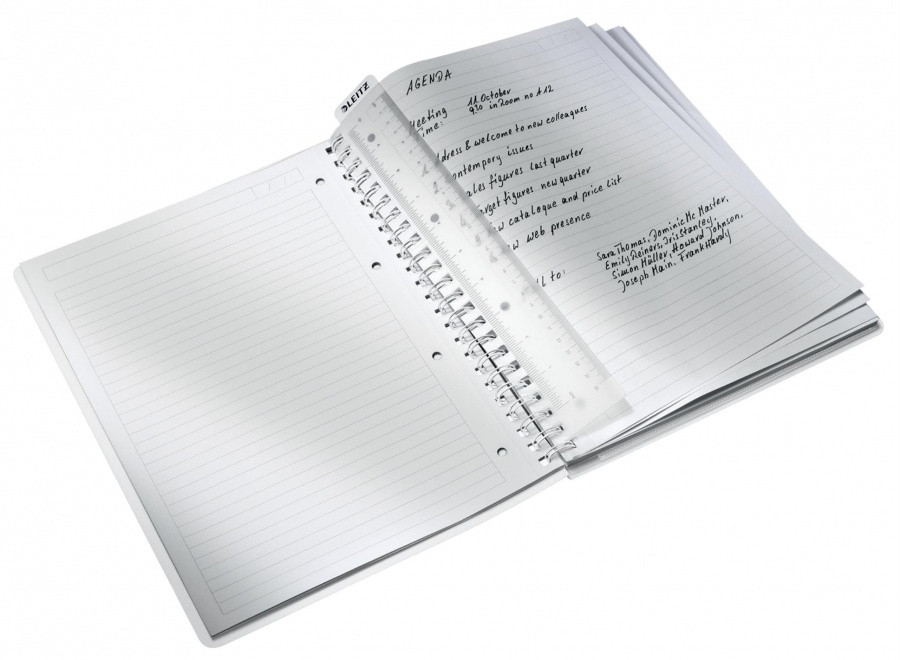 LEITZ
AGENDA
Meeting 11. October
time: 930 in Room no 412
dress & welcome to new colleagues
ontempory issues
ales figures last quarter
arget figures new quarter
w catalogue and price list
w web presence
il to: Sara Thomas, Dominic Mc Master,
Emily Reiners, Iris Stanley,
Simon Müller, Howard Johnson,
Joseph Main, Frank Hardy